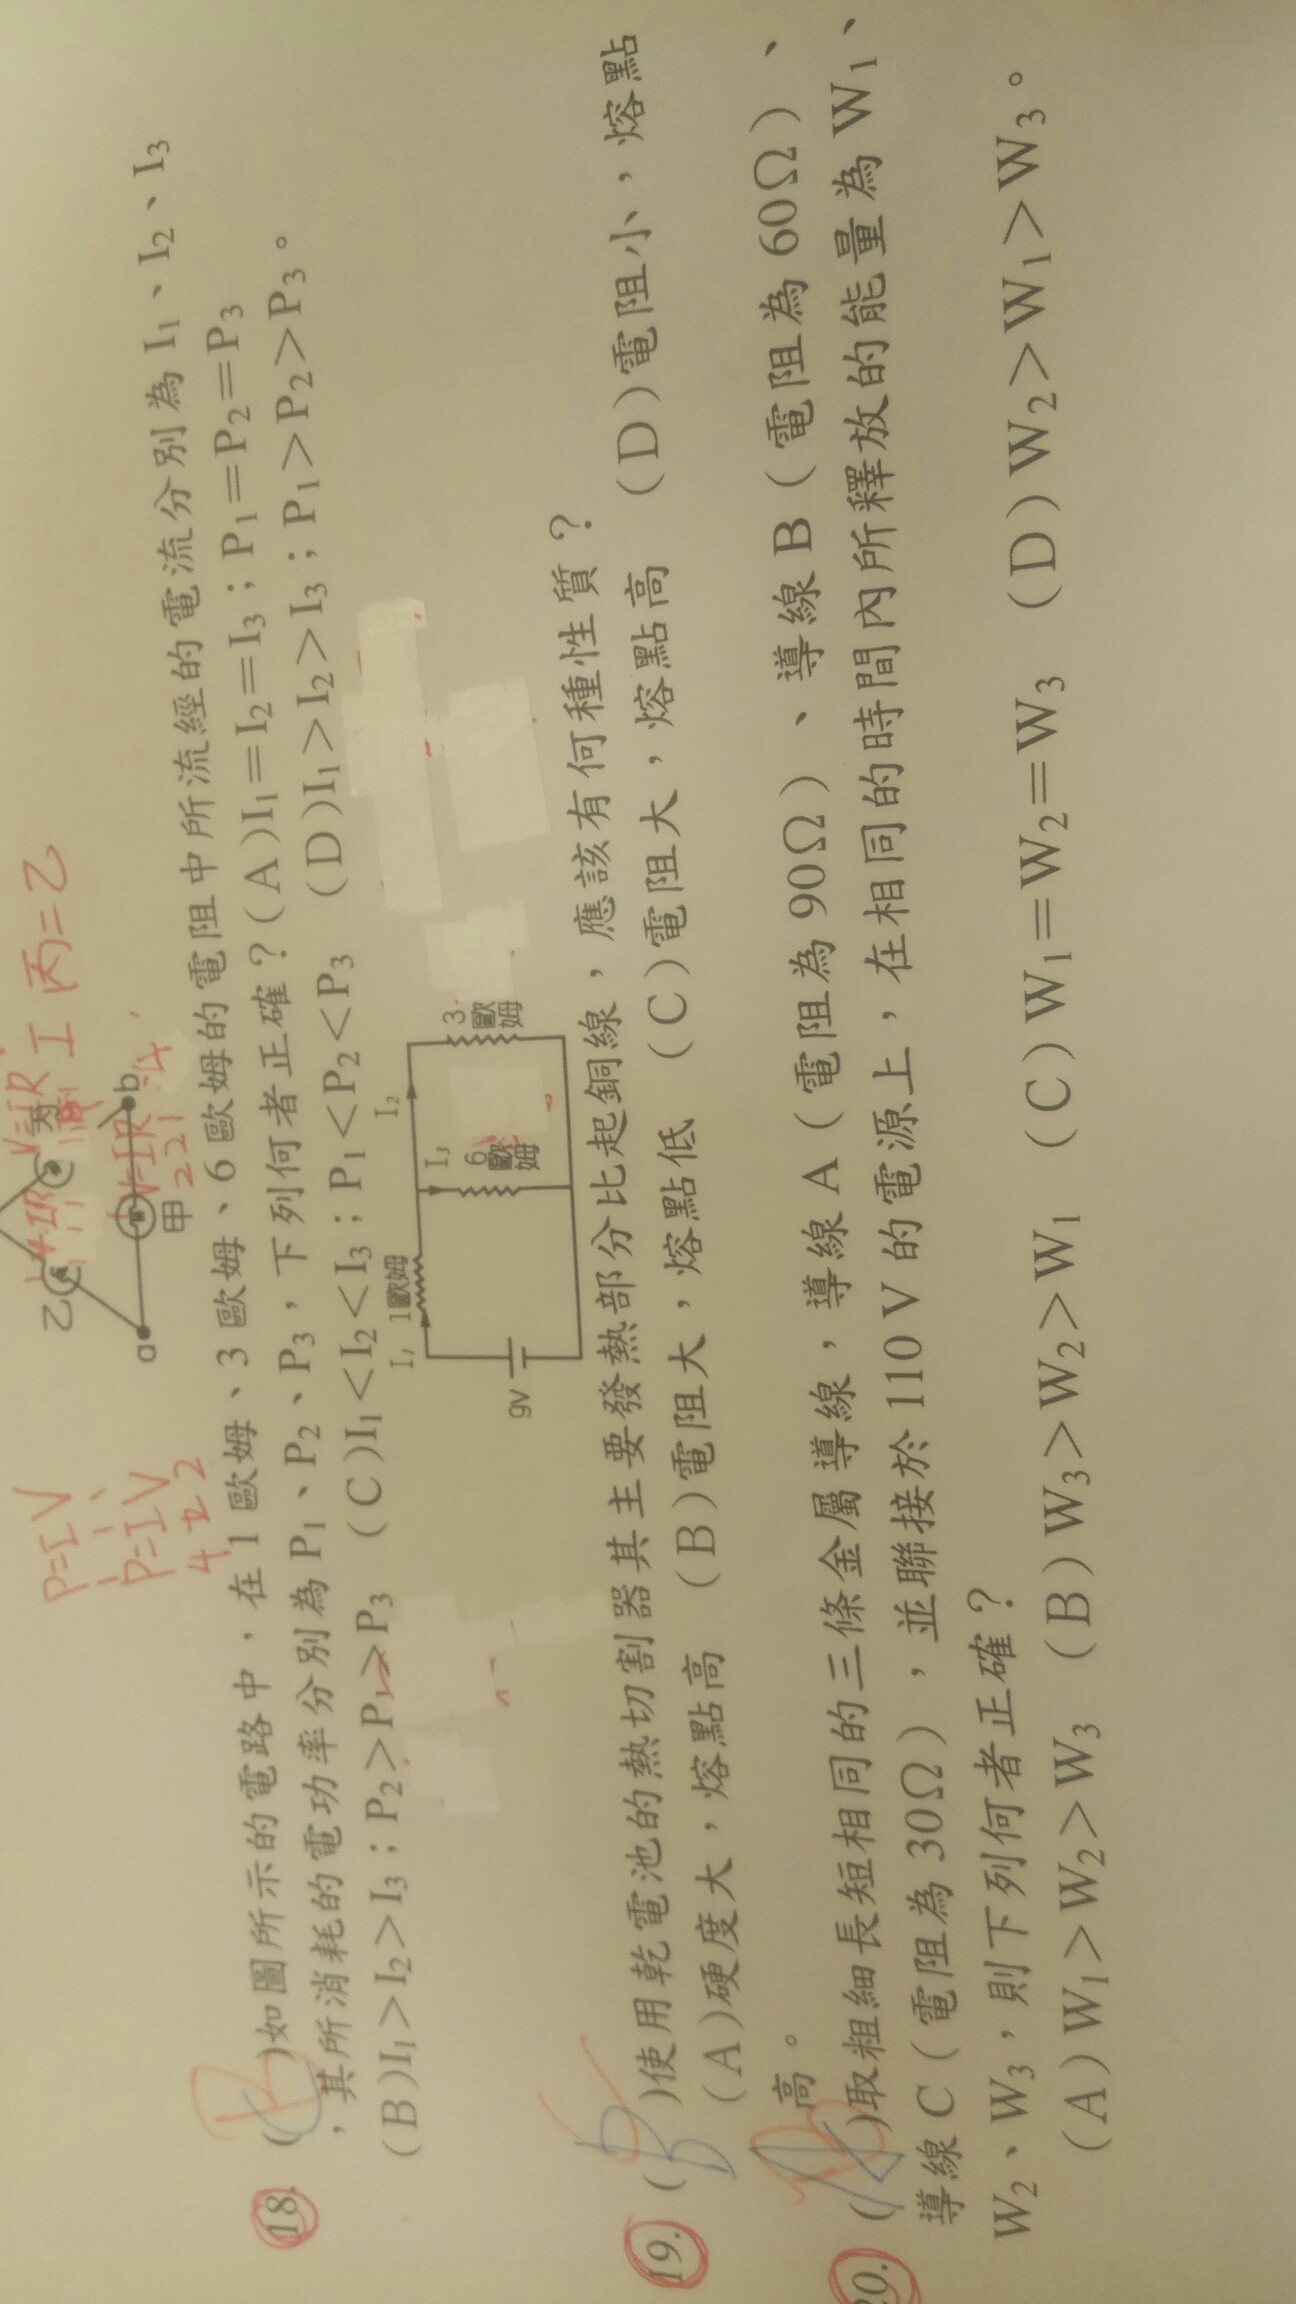 P=IV
P=IV
4 2 2
V=IR I 丙=乙
乙
V=IR
a
b
甲
V=IR
2 2 1
18. ( B )如圖所示的電路中，在1歐姆、3歐姆、6歐姆的電阻中所流經的電流分別為I₁、I₂、I₃
，其所消耗的電功率分別為P₁、P₂、P₃，下列何者正確？(A)I₁=I₂=I₃；P₁=P₂=P₃
(B)I₁>I₂>I₃；P₂>P₁>P₃ (C)I₁<I₂<I₃；P₁<P₂<P₃ (D)I₁>I₂>I₃；P₁>P₂>P₃。
I₁ 1歐姆 I₂
I₃
9V
6歐姆
3歐姆
19. ( B )使用乾電池的熱切割器其主要發熱部分比起銅線，應該有何種性質？
(A)硬度大，熔點高 (B)電阻大，熔點低 (C)電阻大，熔點高 (D)電阻小，熔點
高。
20. ( B )取粗細長短相同的三條金屬導線，導線A（電阻為90Ω）、導線B（電阻為60Ω）、
導線C（電阻為30Ω），並聯接於110V的電源上，在相同的時間內所釋放的能量為W₁、
W₂、W₃，則下列何者正確？
(A)W₁>W₂>W₃ (B)W₃>W₂>W₁ (C)W₁=W₂=W₃ (D)W₂>W₁>W₃。